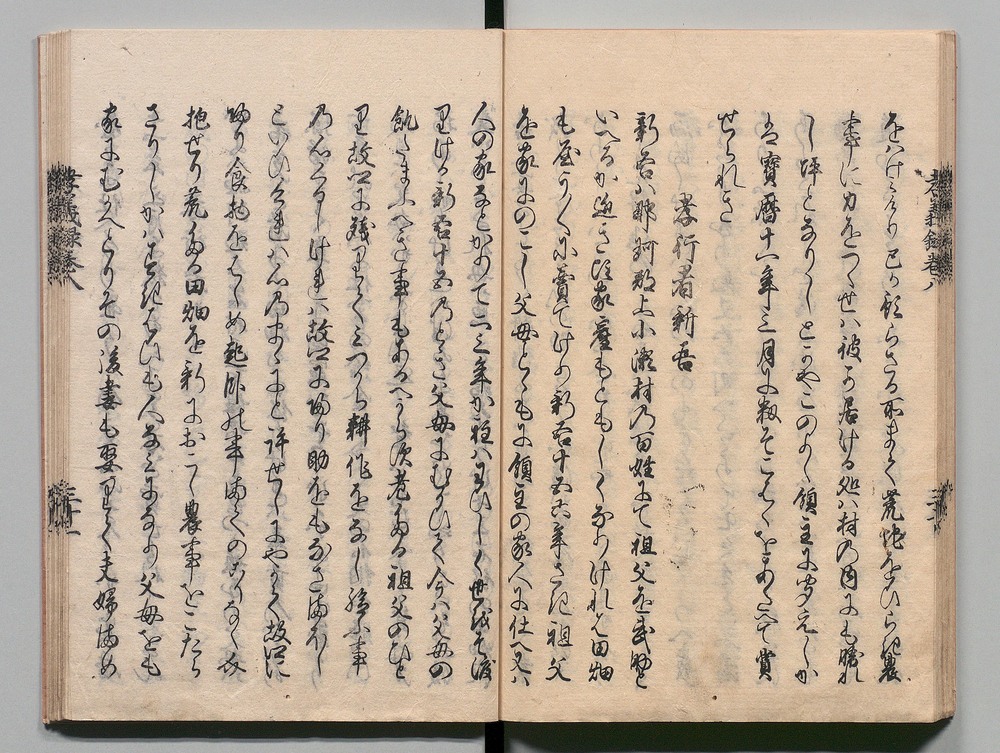 をいけるより已か顧らさる所まて荒地をひらき農
事に力をつくせハ彼の居ける処ハ村の内にも勝れ
し坪となりしとかやこのよし領主に聞えしか
は寶暦十一年三月に籾そこはくをあたへて賞
せられき
孝行者新吾
新吾ハ那珂郡上小瀬村の百姓にて祖父を武助と
いへるか近き頃家産もともしくなりけれは田畑
も屋しきも賣てけり新吾十五六年さき祖父
を家にのこし父母とともに領主の家人に仕へ又ハ
人の家なとかりて二三年か程ハわひしく世をそ渡
りける新吾十五のとき父母にむかひて今ハ父母の
飢たまふへき事もあるへからす老たる祖父のひと
り故郷に残りてみつから耕作をなし給ふ事
乃心くるしけれハ故郷に帰り助をもなさまほし
とこひけれハ心のまゝにと許せしにやかて故郷に
帰り食物をはしめ起臥の事まてのこりなく介
抱せり荒たる田畑を新におこし農事をこたら
さりしかハすきはひも人なみになり父母をも
家にむかへとりその後妻も娶りて夫婦まめ
孝義録巻八
孝義録巻八